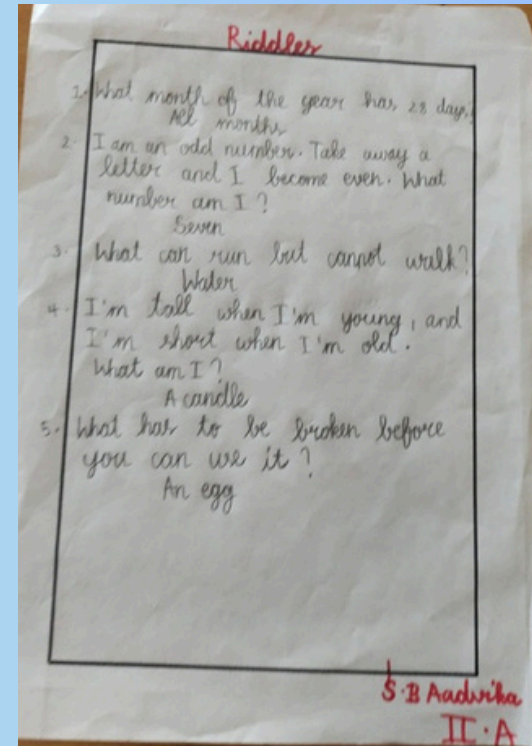 Riddles
1. What month of the year has 28 days?
All months
2. I am an odd number. Take away a
letter and I become even. What
number am I?
Seven
3. What can run but cannot walk?
Water
4. I'm tall when I'm young, and
I'm short when I'm old.
What am I?
A candle
5. What has to be broken before
you can use it?
An egg
S.B Aadvika
II.A